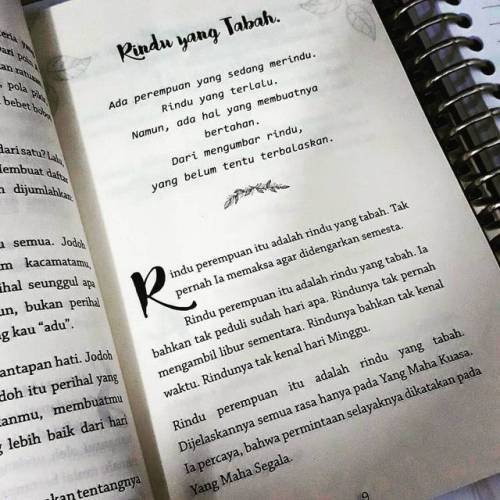 dari satu? Lalu,
Membuat daftar
dijumlahkan.
semua. Jodoh
kacamatamu,
seunggul apa
bukan perihal
g kau "adu".
antapan hati. Jodoh
doh itu perihal yang
kanmu, membuatmu
lebih baik dari hari
kan tentangnya
Rindu yang Tabah.
Ada perempuan yang sedang merindu.
Rindu yang terlalu.
Namun, ada hal yang membuatnya
bertahan.
Dari mengumbar rindu,
yang belum tentu terbalaskan.
Rindu perempuan itu adalah rindu yang tabah. Tak
pernah Ia memaksa agar didengarkan semesta.
Rindu perempuan itu adalah rindu yang tabah. Ia
bahkan tak peduli sudah hari apa. Rindunya tak pernah
mengambil libur sementara. Rindunya bahkan tak kenal
waktu. Rindunya tak kenal hari Minggu.
Rindu perempuan itu adalah rindu yang tabah.
Dijelaskannya semua rasa hanya pada Yang Maha Kuasa.
Ia percaya, bahwa permintaan selayaknya dikatakan pada
Yang Maha Segala.
9